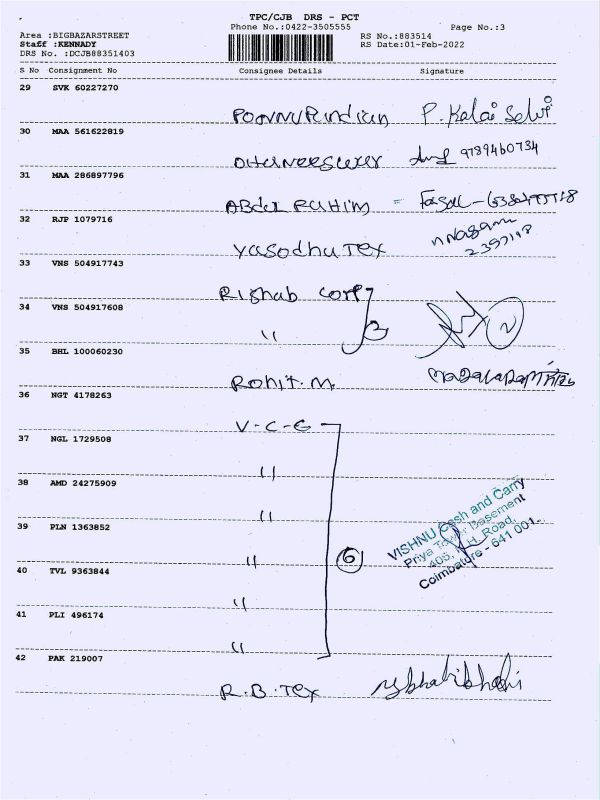 TPC/CJB DRS - PCT
Phone No.:0422-3505555 Page No.:3
Area :BIGBAZARSTREET
Staff :KENNADY
DRS No. :DCJB88351403
RS No.:883514
RS Date:01-Feb-2022
S No Consignment No Consignee Details Signature
29 SVK 60227270
P. Kalai Selvi
30 MAA 561622819
9789460734
31 MAA 286897796
ABdul RAHIM =
32 RJP 1079716
Yasodhu Tex
33 VNS 504917743
Rishab Corp
34 VNS 504917608
"
35 BHL 100060230
Rohit. M.
36 NGT 4178263
V-C-C
37 NGL 1729508
"
38 AMD 24275909
"
39 PLN 1363852
"
6
VISHNU Cash and Carry
Priya Tower Basement
403, N.H. Road,
Coimbature - 641 001.
40 TVL 9363844
"
41 PLI 496174
"
42 PAK 219007
R.B.Tex